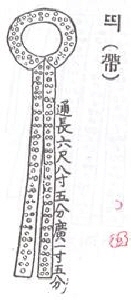 띄(帶)
通長六尺八寸五分廣一寸五分